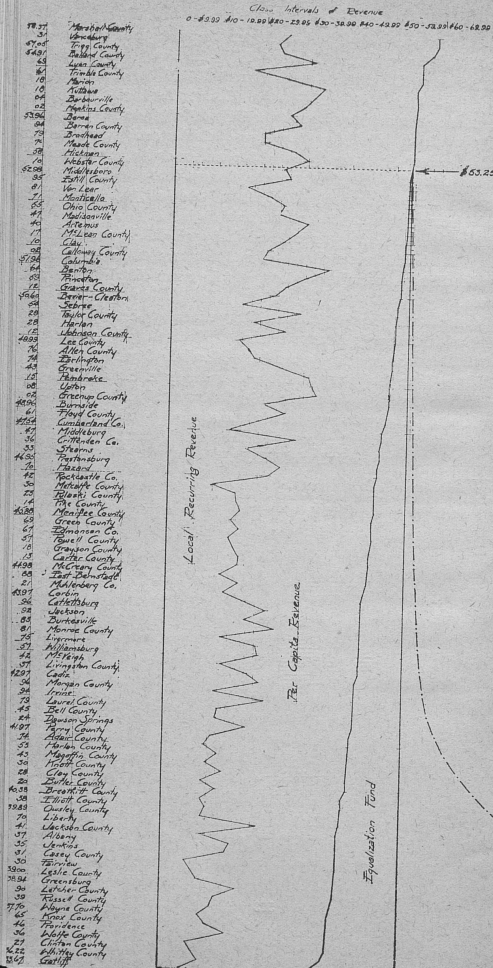 Class Intervals of Revenue
0-$9.99 $10-19.99 $20-29.99 $30-39.99 $40-49.99 $50-59.99 $60-69.99
Marshall County
31 Vanceburg
57.05 Trigg County
54.91 Ballard County
Lyon County
Trimble County
18 Marion
18 Kuttawa
04 Barbourville
02 Hopkins County
53.96 Berea
Barren County
79 Brodhead
Meade County
58 Hickman
10 Webster County
52.98 Middlesboro
$53.25
95 Estill County
81 Van Lear
71 Monticello
55 Ohio County
47 Madisonville
40 Artemus
17 McLean County
10 Clay
02 Calloway County
51.96 Columbia
64 Benton
53 Princeton
12 Graves County
Bevier-Cleaton
54 Sebree
28 Taylor County
28 Harlan
12 Johnson County
49.93 Lee County
76 Allen County
74 Earlington
43 Greenville
15 Pembroke
08 Upton
02 Greenup County
48.96 Burnside
61 Floyd County
Cumberland County
47 Middleburg
36 Crittenden Co.
33 Stearns
46.90 Prestonsburg
70 Hazard
42 Rockcastle Co.
30 Metcalfe County
25 Pulaski County
14 Pike County
Menifee County
69 Green County
67 Edmonson Co.
57 Powell County
18 Grayson County
15 Carter County
44.98 McCreary County
88 East Bernstadt
21 Muhlenberg Co.
43.97 Corbin
96 Catlettsburg
92 Jackson
83 Burkesville
81 Monroe County
75 Livermore
57 Williamsburg
42 McVeigh
37 Livingston County
42.97 Cadiz
96 Morgan County
94 Irvine
79 Laurel County
45 Bell County
24 Dawson Springs
41.97 Perry County
74 Adair County
53 Harlan County
43 Magoffin County
30 Knott County
28 Clay County
20 Butler County
40.38 Breathitt County
38 Elliott County
39.89 Owsley County
70 Liberty
41 Jackson County
37 Albany
35 Jenkins
31 Casey County
30 Fairview
39.00 Leslie County
38.94 Greensburg
90 Letcher County
39 Russell County
37.70 Wayne County
65 Knox County
46 Providence
36 Wolfe County
27 Clinton County
36.22 Whitley County
33.67 Gatliff
Local Recurring Revenue
Per Capita Revenue
Equalization Fund